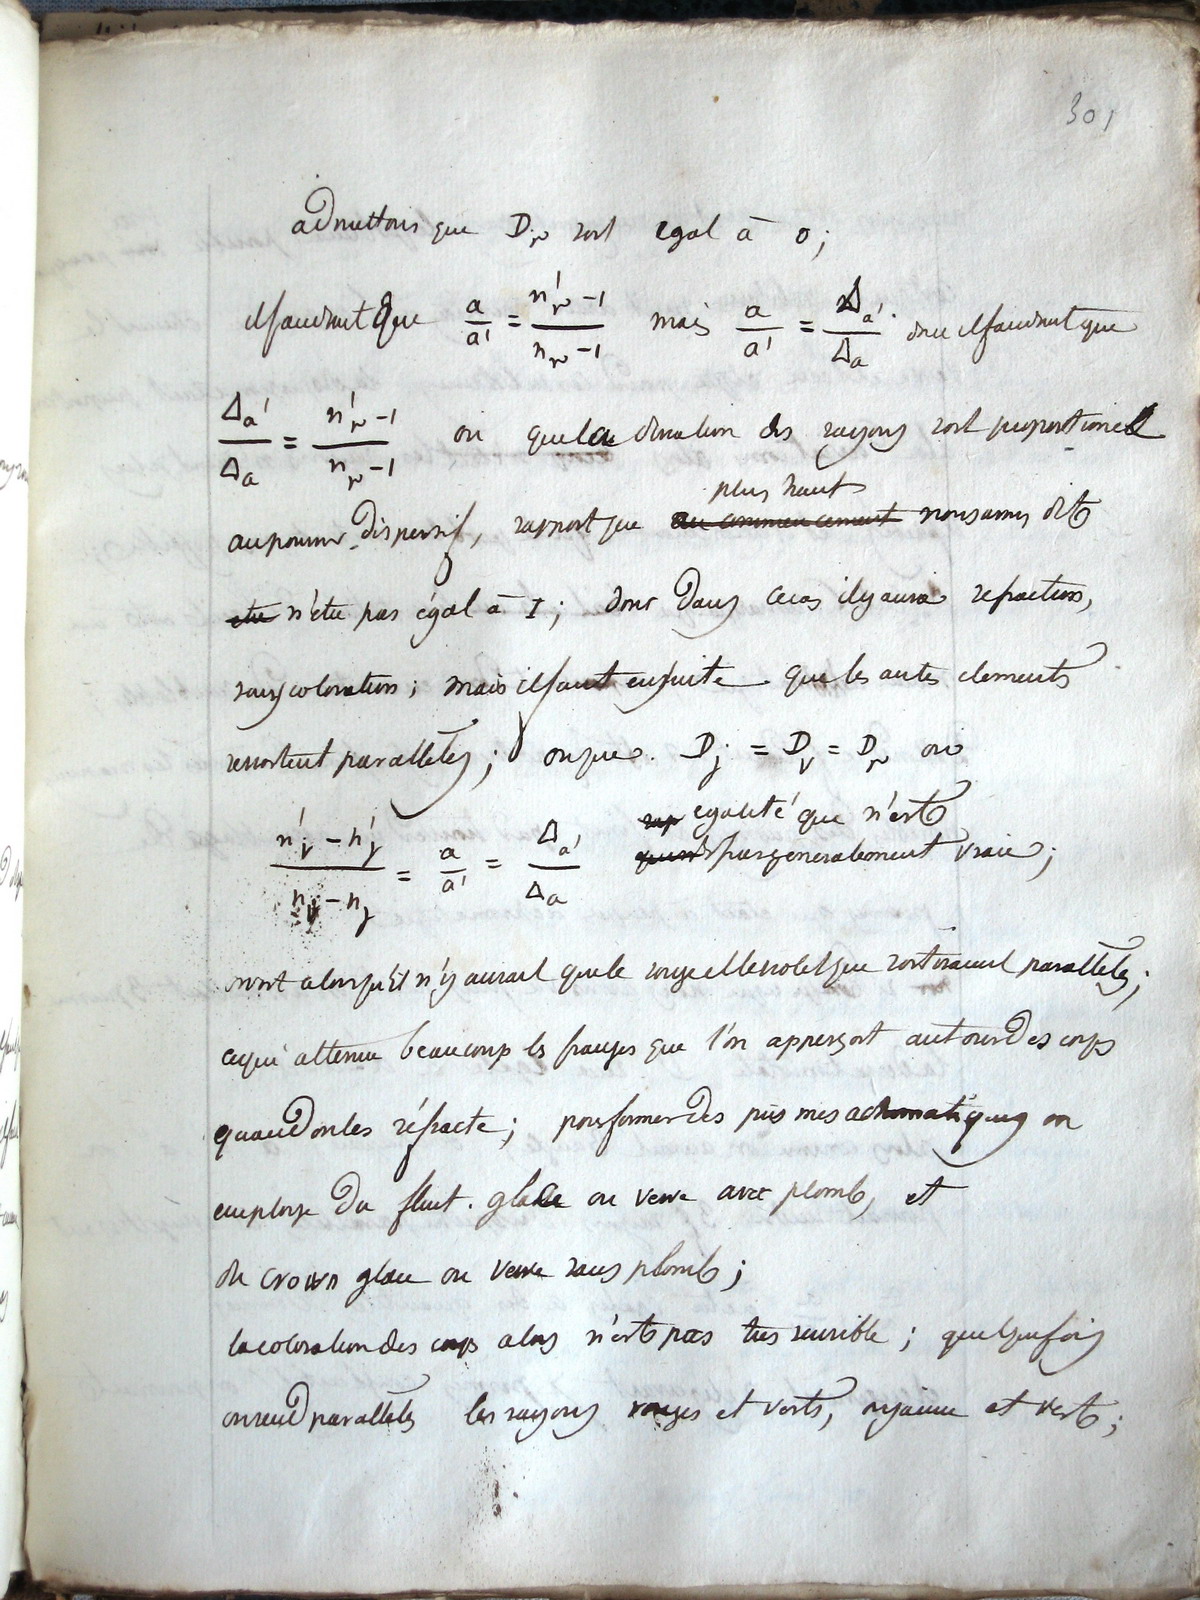 301
admettons que D_r soit egal à 0;
il faudrait que a/a' = (n'_r - 1)/(n_r - 1) mais a/a' = Δa'/Δa donc il faudrait que
Δa'/Δa = (n'_r - 1)/(n_r - 1) ou que la deviation des rayons soit proportionel
plus haut
au pouvoir dispersif, rapport que au commencement nous avons dit
etre n'être pas égal à 1; donc dans ce cas il y aura refraction,
sans coloration; mais il faut ensuite que les autres elements
ressortent paralleles; ou que D_j = D_v = D_r ou
(n'_v - n'_j)/(n_v - n_j) = a/a' = Δa'/Δa egalité que n'est
pas generalement vraie;
alors qu'il n'y aurait que le rouge et le violet que sortiraient paralleles;
ce qui attenue beaucoup les franges que l'on apperçoit autour des corps
quand on les réfracte; pour former des prismes achromatiques on
employe du flint. glace ou verre avec plomb, et
du crown glace ou verre sans plomb;
la coloration des corps alors n'est pas tres sensible; quelquefois
on rend paralleles les rayons rouges et verts, ou jaune et vert;